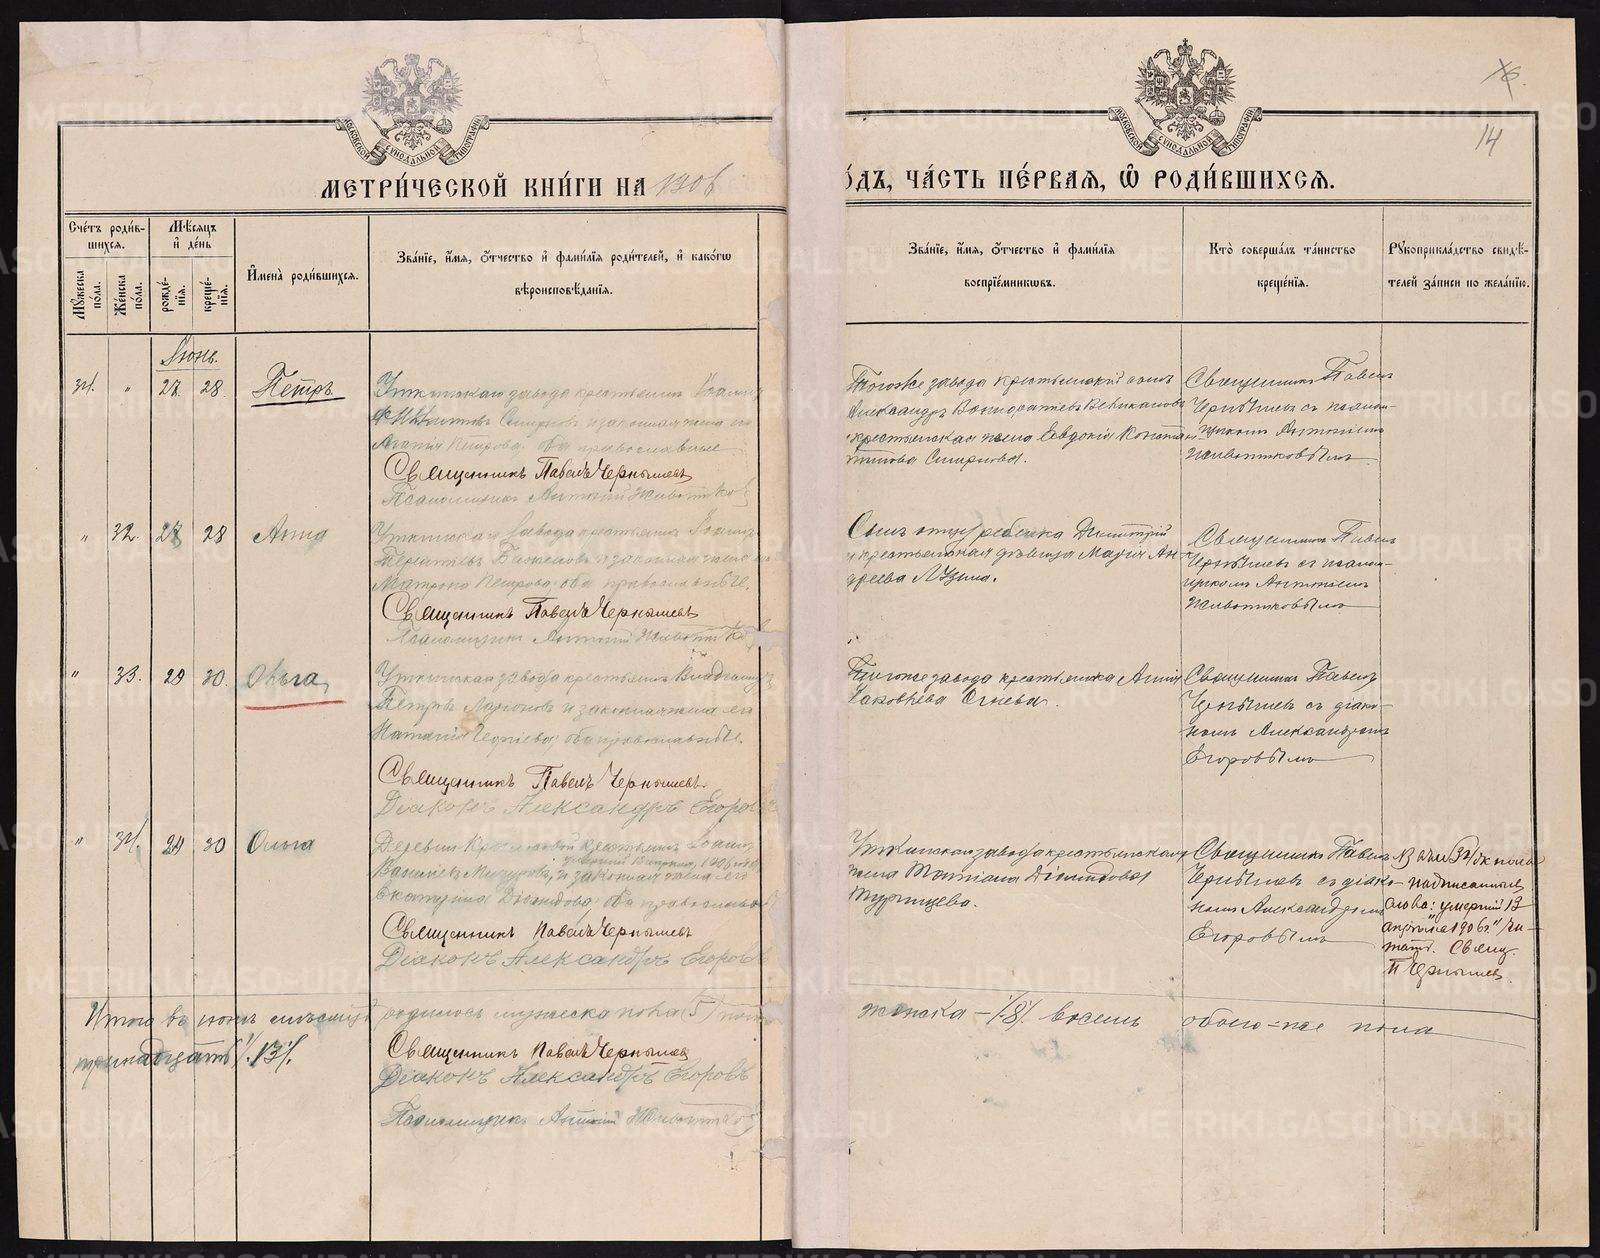 МОСКОВСКОЙ СѴНОДАЛЬНОЙ ТИПОГРАФІИ
МОСКОВСКОЙ СѴНОДАЛЬНОЙ ТИПОГРАФІИ
14
МЕТРИ́ЧЕСКОЙ КНИ́ГИ НА 1906
ѠДЪ, ЧА́СТЬ ПЕ́РВАЯ, Ѡ҆ РОДИ́ВШИХСѦ.
Сче́тъ роди́в-
шихсѧ.
Мꙋ́жеска по́ла.
Же́нска по́ла.
Мѣ́сѧцъ
и҆ де́нь
рожде́нїѧ.
креще́нїѧ.
И҆мена̀ роди́вшихсѧ.
Зва́нїе, и҆́мѧ, ѻ҆́тчество и҆ фами́лїѧ роди́телей, и҆ како́гѡ
вѣроисповѣ́данїѧ.
Зва́нїе, и҆́мѧ, ѻ҆́тчество и҆ фами́лїѧ
воспрїе́мникѡвъ.
Кто̀ соверша́лъ та́инство
креще́нїѧ.
Рꙋкоприкла́дство свидѣ́-
телей за́писи по жела́нїю.
Іюнь.
31. " 27 28 Петръ.
Уткинскаго завода крестьянинъ Іоаннъ
Смирновъ и законная жена его
Агатія Петрова оба православные
Священникъ Павелъ Чернышевъ
Псаломщикъ Антоній Животиков
Тогоже завода крестьянскій сынъ
Александръ
крестьянская жена Евдокія Констан-
тинова Смирнова.
Священникъ Павелъ
Чернышевъ съ псалом-
щикомъ Антоніемъ
Животиковымъ
" 32. 27 28 Анна
Уткинскаго завода крестьянинъ Іоаннъ
Терентьевъ и законная жена его
Матрона Петрова оба православные.
Священникъ Павелъ Чернышевъ
Псаломщикъ Антоній Животиков
Сынъ отца ребенка Димитрій
и крестьянская дѣвица Марія Ан-
дреева Лузина.
Священникъ Павелъ
Чернышевъ съ псалом-
щикомъ Антоніемъ
Животиковымъ
" 33. 29 30. Ольга
Уткинскаго завода крестьянинъ Владиміръ
Петровъ Ларіоновъ и законная жена его
Наталія оба православные.
Священникъ Павелъ Чернышевъ
Діаконъ Александръ Егоровъ
Тогоже завода крестьянка Анна
Яковлева Огнева.
Священникъ Павелъ
Чернышевъ съ діако-
номъ Александромъ
Егоровымъ
" 34. 29 30 Ольга
Деревни крестьянинъ Іоаннъ
умершій 13 апрѣля 1906 года
Васильевъ и законная жена его
Екатерина Діомидова оба православные
Священникъ Павелъ Чернышевъ
Діаконъ Александръ Егоровъ
Уткинскаго завода крестьянская
жена Татіана Діомидова
Турыщева.
Священникъ Павелъ
Чернышевъ съ діако-
номъ Александромъ
Егоровымъ
надписанныя
слова: "умершій 13
апрѣля 1906 г." чи-
тать. Свящ.
П Чернышев
Итого въ іюнѣ мѣсяцѣ родилось мужеска пола (5) пять
женска – (8) восемь обоего-же пола
тринадцать (13).
Священникъ Павелъ Чернышев
Діаконъ Александръ Егоровъ
Псаломщикъ Антоній Животиков
METRIKI.GASO-URAL.RU